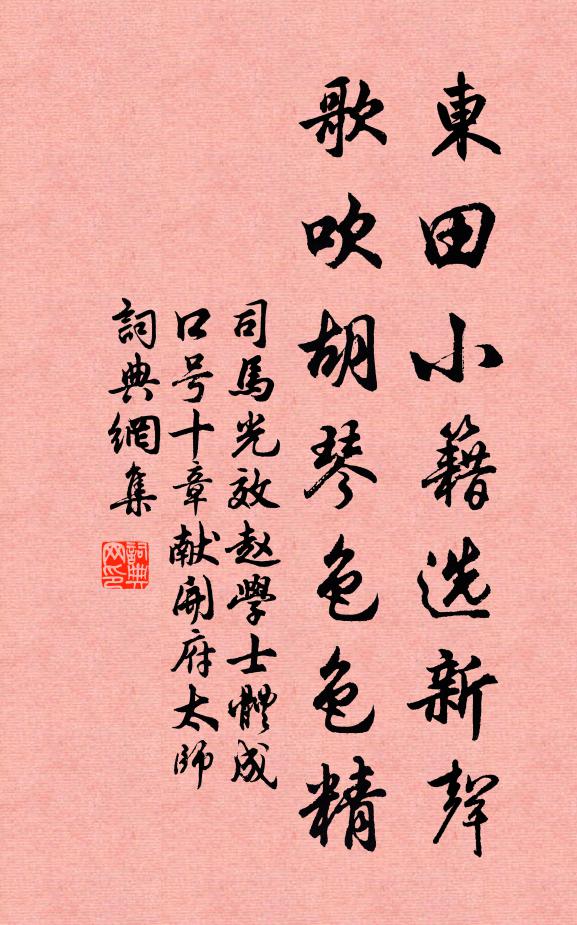 東田小籍选新聲
歌吹胡琴色色精
司馬光效赵學士體成
口号十章献開府太師
詞典網集
詞典網印